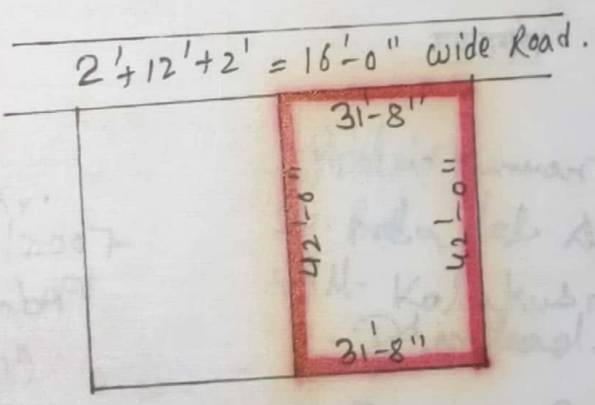 2'+12'+2' = 16'-0" wide Road.
31'-8"
42'-0"
42'-0"
31'-8"